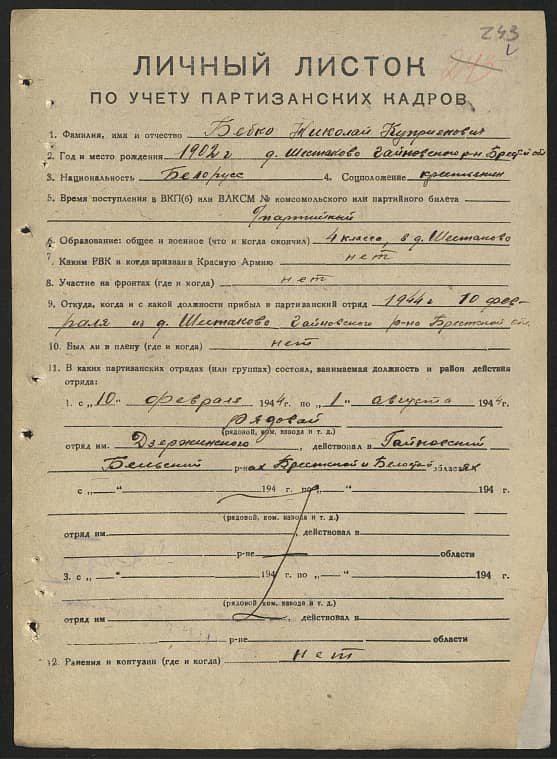 243
ЛИЧНЫЙ ЛИСТОК
ПО УЧЕТУ ПАРТИЗАНСКИХ КАДРОВ
1. Фамилия, имя и отчество Бебко Николай Куприянович
2. Год и место рождения 1902 г д. Шестаково Гайновского р-н Брест обл
3. Национальность Белорусс 4. Соцположение крестьянин
5. Время поступления в ВКП(б) или ВЛКСМ № комсомольского или партийного билета
б/партийный
6. Образование: общее и военное (что и когда окончил) 4 класса, в д. Шестаково
7. Каким РВК и когда призван в Красную Армию нет
8. Участие на фронтах (где и когда) нет
9. Откуда, когда и с какой должности прибыл в партизанский отряд 1944 г 10 фев-
раля из д. Шестаково Гайновского р-на Брестской обл.
10. Был ли в плену (где и когда) нет
11. В каких партизанских отрядах (или группах) состоял, занимаемая должность и район действия
отряда:
1. с „10" февраля 1944 г. по „1" августа 1944 г.
Рядовой
(рядовой, ком. взвода и т. д.)
отряд им. Дзержинского, действовал в Гайновский
Бельский р-нах Брестской и Белост областях
с „ " 194 г. по „ " 194 г.
(рядовой, ком. взвода и т. д.)
отряд им , действовал в
р-не области
3. с „ " 194 г. по „ " 194 г.
(рядовой, ком. взвода и т. д.)
отряд им , действовал в
р-не области
12. Ранения и контузии (где и когда) нет